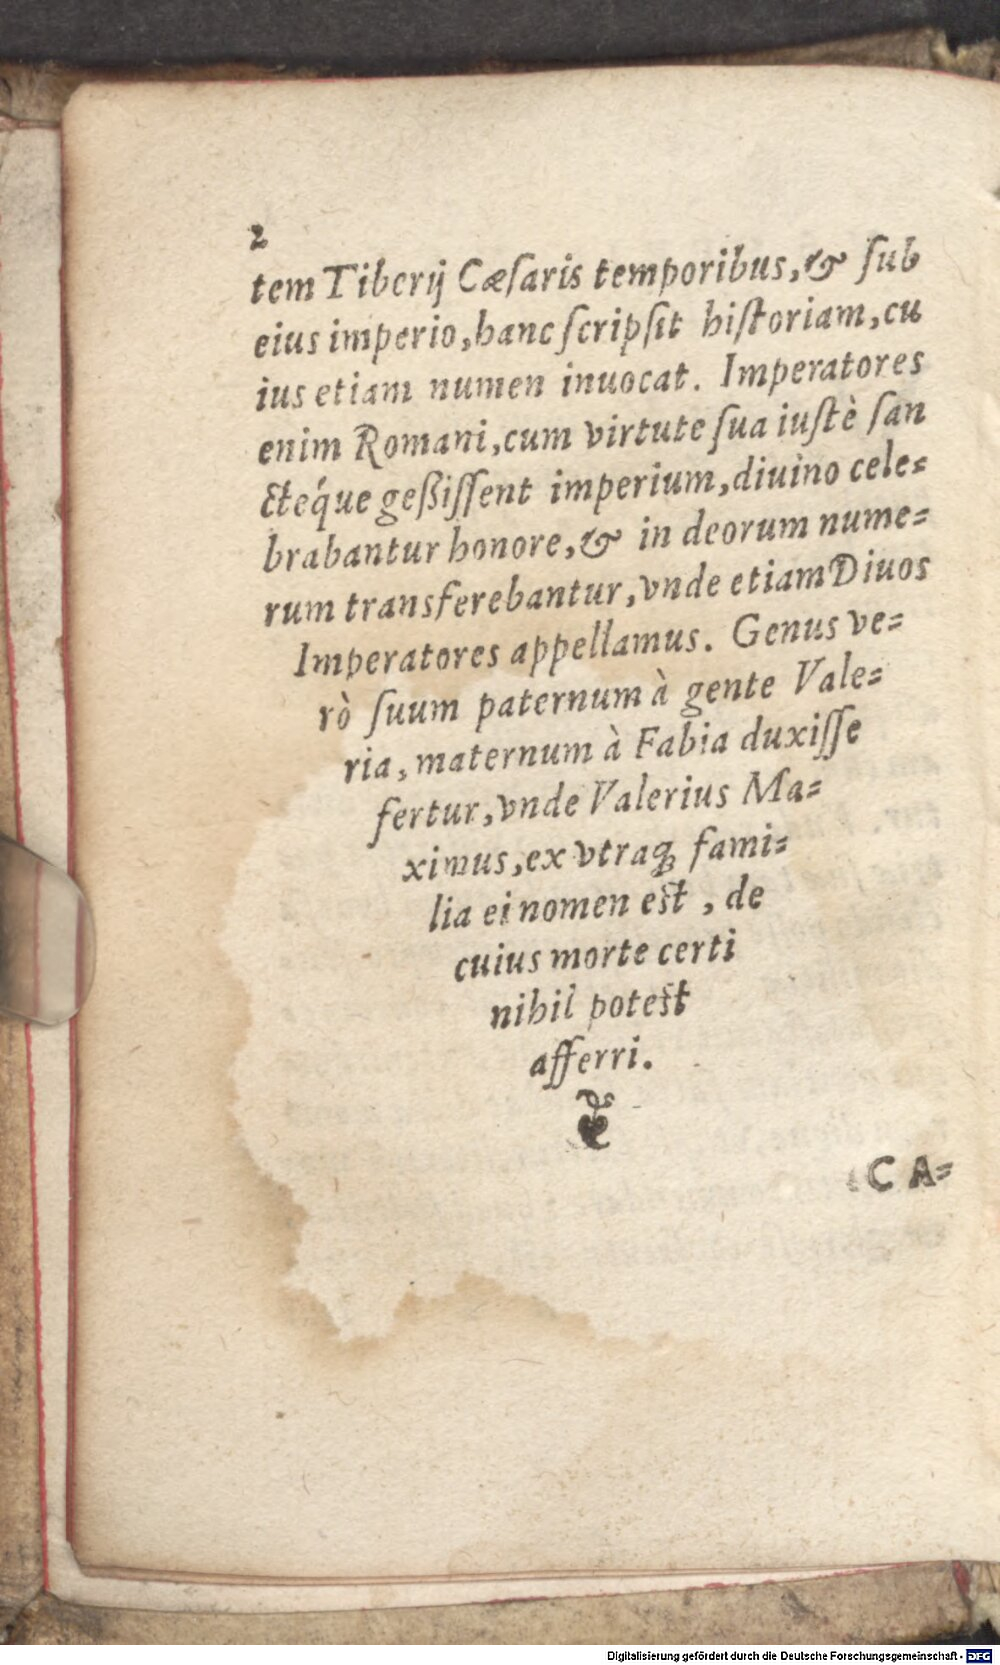 2
tem Tiberij Cæſaris temporibus,& ſub
eius imperio,hanc ſcripſit hiſtoriam,cu
ius etiam numen inuocat. Imperatores
enim Romani,cum virtute ſua iuſtè ſan
ctéque geßiſſent imperium,diuino cele=
brabantur honore,& in deorum nume=
rum transferebantur,vnde etiam Diuos
Imperatores appellamus. Genus ve=
rò ſuum paternum à gente Vale=
ria,maternum à Fabia duxiſſe
fertur,vnde Valerius Ma=
ximus,ex vtraq; fami=
lia ei nomen eſt , de
cuius morte certi
nihil poteſt
afferri.
CA=
Digitalisierung gefördert durch die Deutsche Forschungsgemeinschaft - DFG